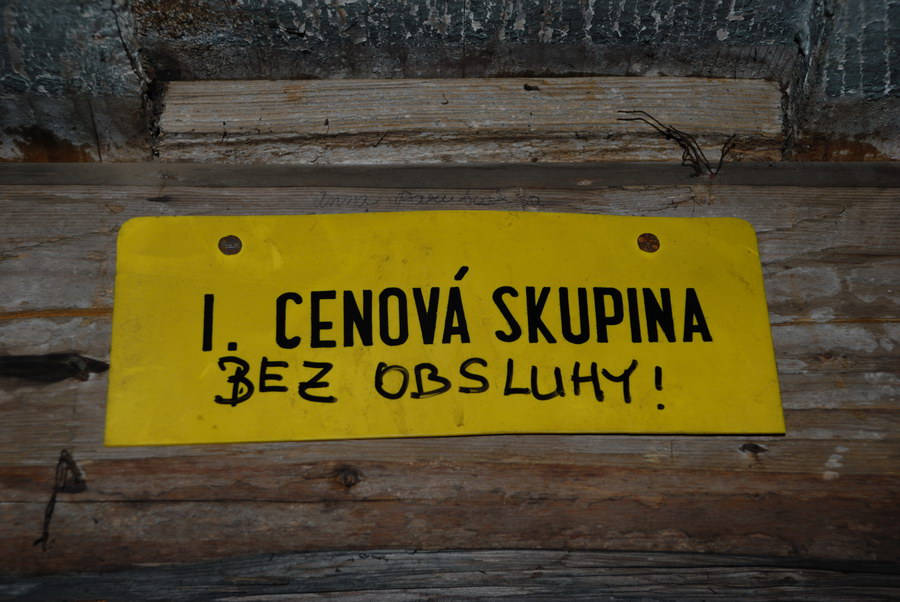 I. CENOVÁ SKUPINA
BEZ OBSLUHY!